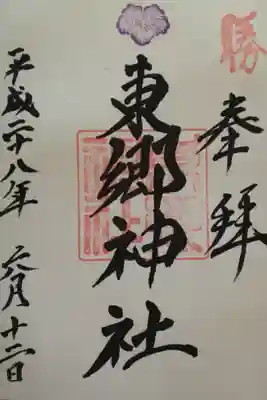 勝
奉拝
東郷神社
平成二十八年 六月十二日